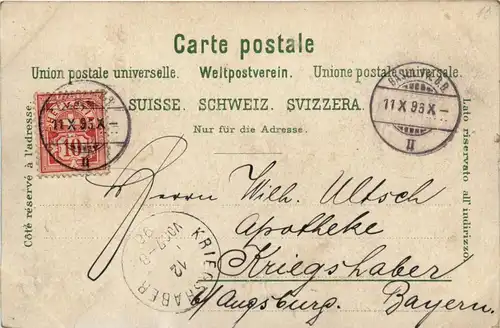 Carte postale
Union postale universelle. Weltpostverein. Unione postale universale.
SUISSE. SCHWEIZ. SVIZZERA.
Nur für die Adresse.
Côté réservé à l'adresse.
Lato riservato all'indirizzo.
11 X 96 X–
II
10
11 X 96 X–
II
Herrn Wilh. Ultsch
Apotheke
Kriegshaber
b/Augsburg. Bayern.
KRIEGSHABER
12